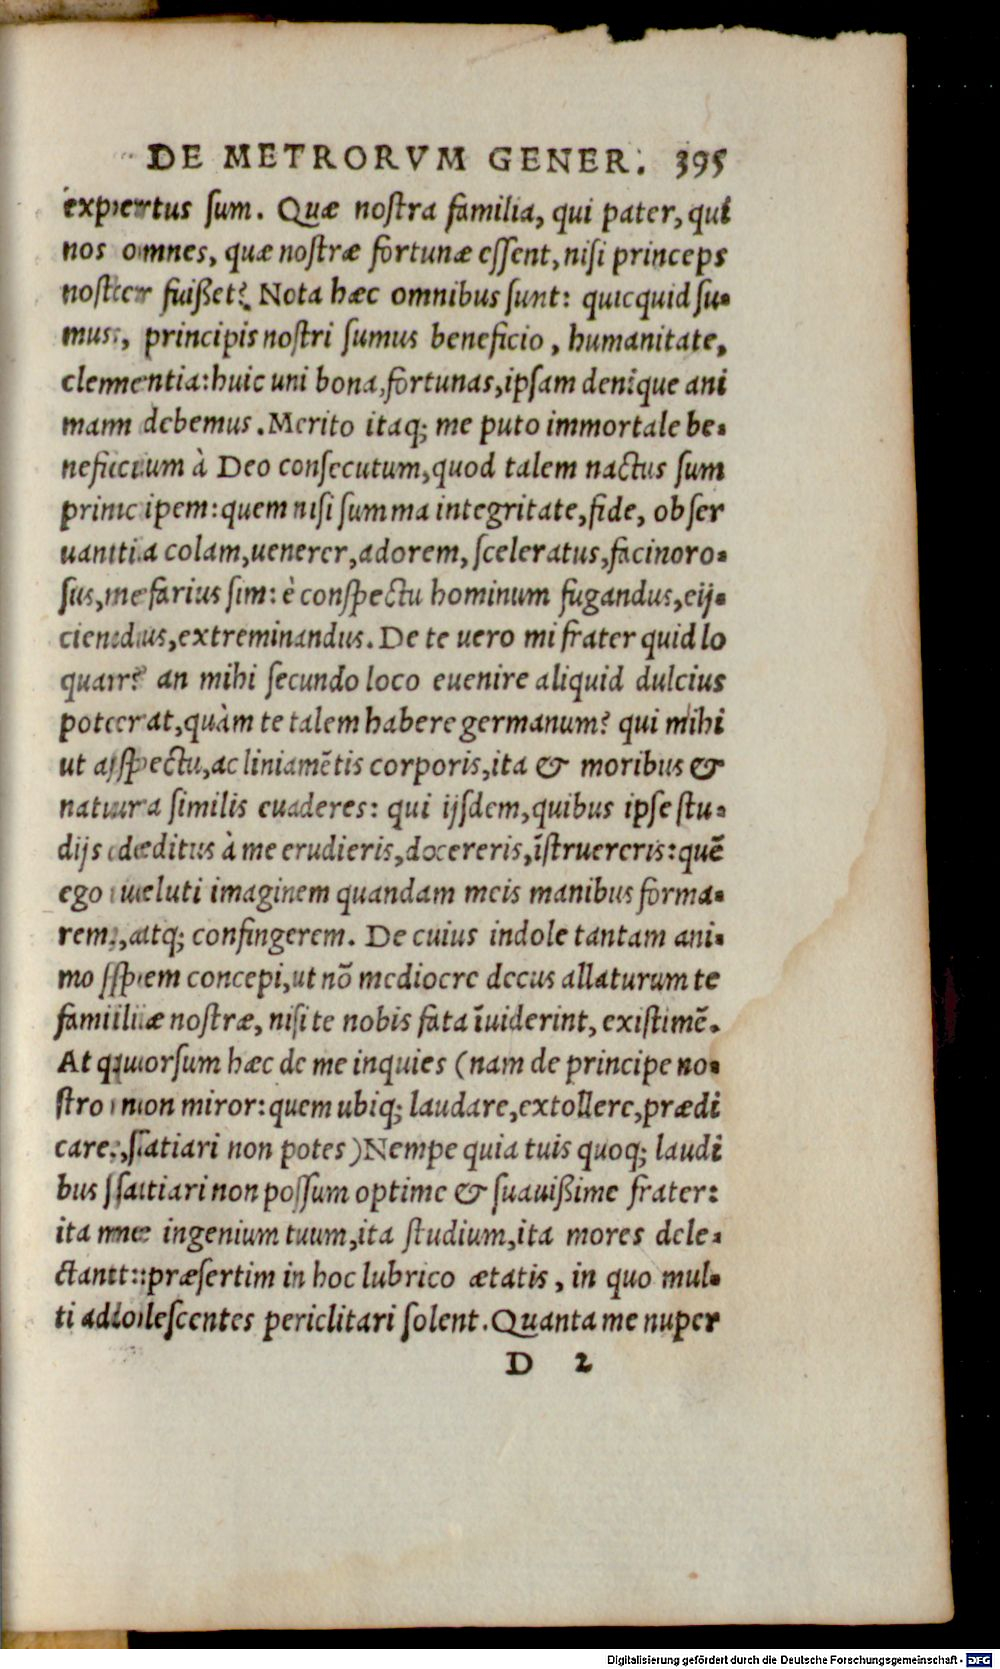 DE METRORVM GENER. 395
expertus sum. Quæ nostra familia, qui pater, qui
nos omnes, quæ nostræ fortunæ essent, nisi princeps
noster fuißet? Nota hæc omnibus sunt: quicquid su-
mus, principis nostri sumus beneficio, humanitate,
clementia: huic uni bona, fortunas, ipsam denique ani
mam debemus. Merito itaq; me puto immortale be-
neficium à Deo consecutum, quod talem nactus sum
principem: quem nisi summa integritate, fide, obser
uantia colam, uenerer, adorem, sceleratus, facinoro-
sus, nefarius sim: è conspectu hominum fugandus, eij-
ciendus, extreminandus. De te uero mi frater quid lo
quar? an mihi secundo loco euenire aliquid dulcius
poterat, quàm te talem habere germanum? qui mihi
ut aspectu, ac liniamētis corporis, ita & moribus &
natura similis euaderes: qui ijsdem, quibus ipse stu-
dijs deditus à me erudieris, docereris, īstruereris: quē
ego ueluti imaginem quandam meis manibus forma-
rem, atq; confingerem. De cuius indole tantam ani-
mo spem concepi, ut nō mediocre decus allaturum te
familiæ nostræ, nisi te nobis fata īuiderint, existimē.
At quorsum hæc de me inquies (nam de principe no-
stro non miror: quem ubiq; laudare, extollere, prædi
care, satiari non potes) Nempe quia tuis quoq; laudi
bus satiari non possum optime & suauißime frater:
ita me ingenium tuum, ita studium, ita mores dele-
ctant: præsertim in hoc lubrico ætatis, in quo mul-
ti adolescentes periclitari solent. Quanta me nuper
D 2
Digitalisierung gefördert durch die Deutsche Forschungsgemeinschaft - DFG